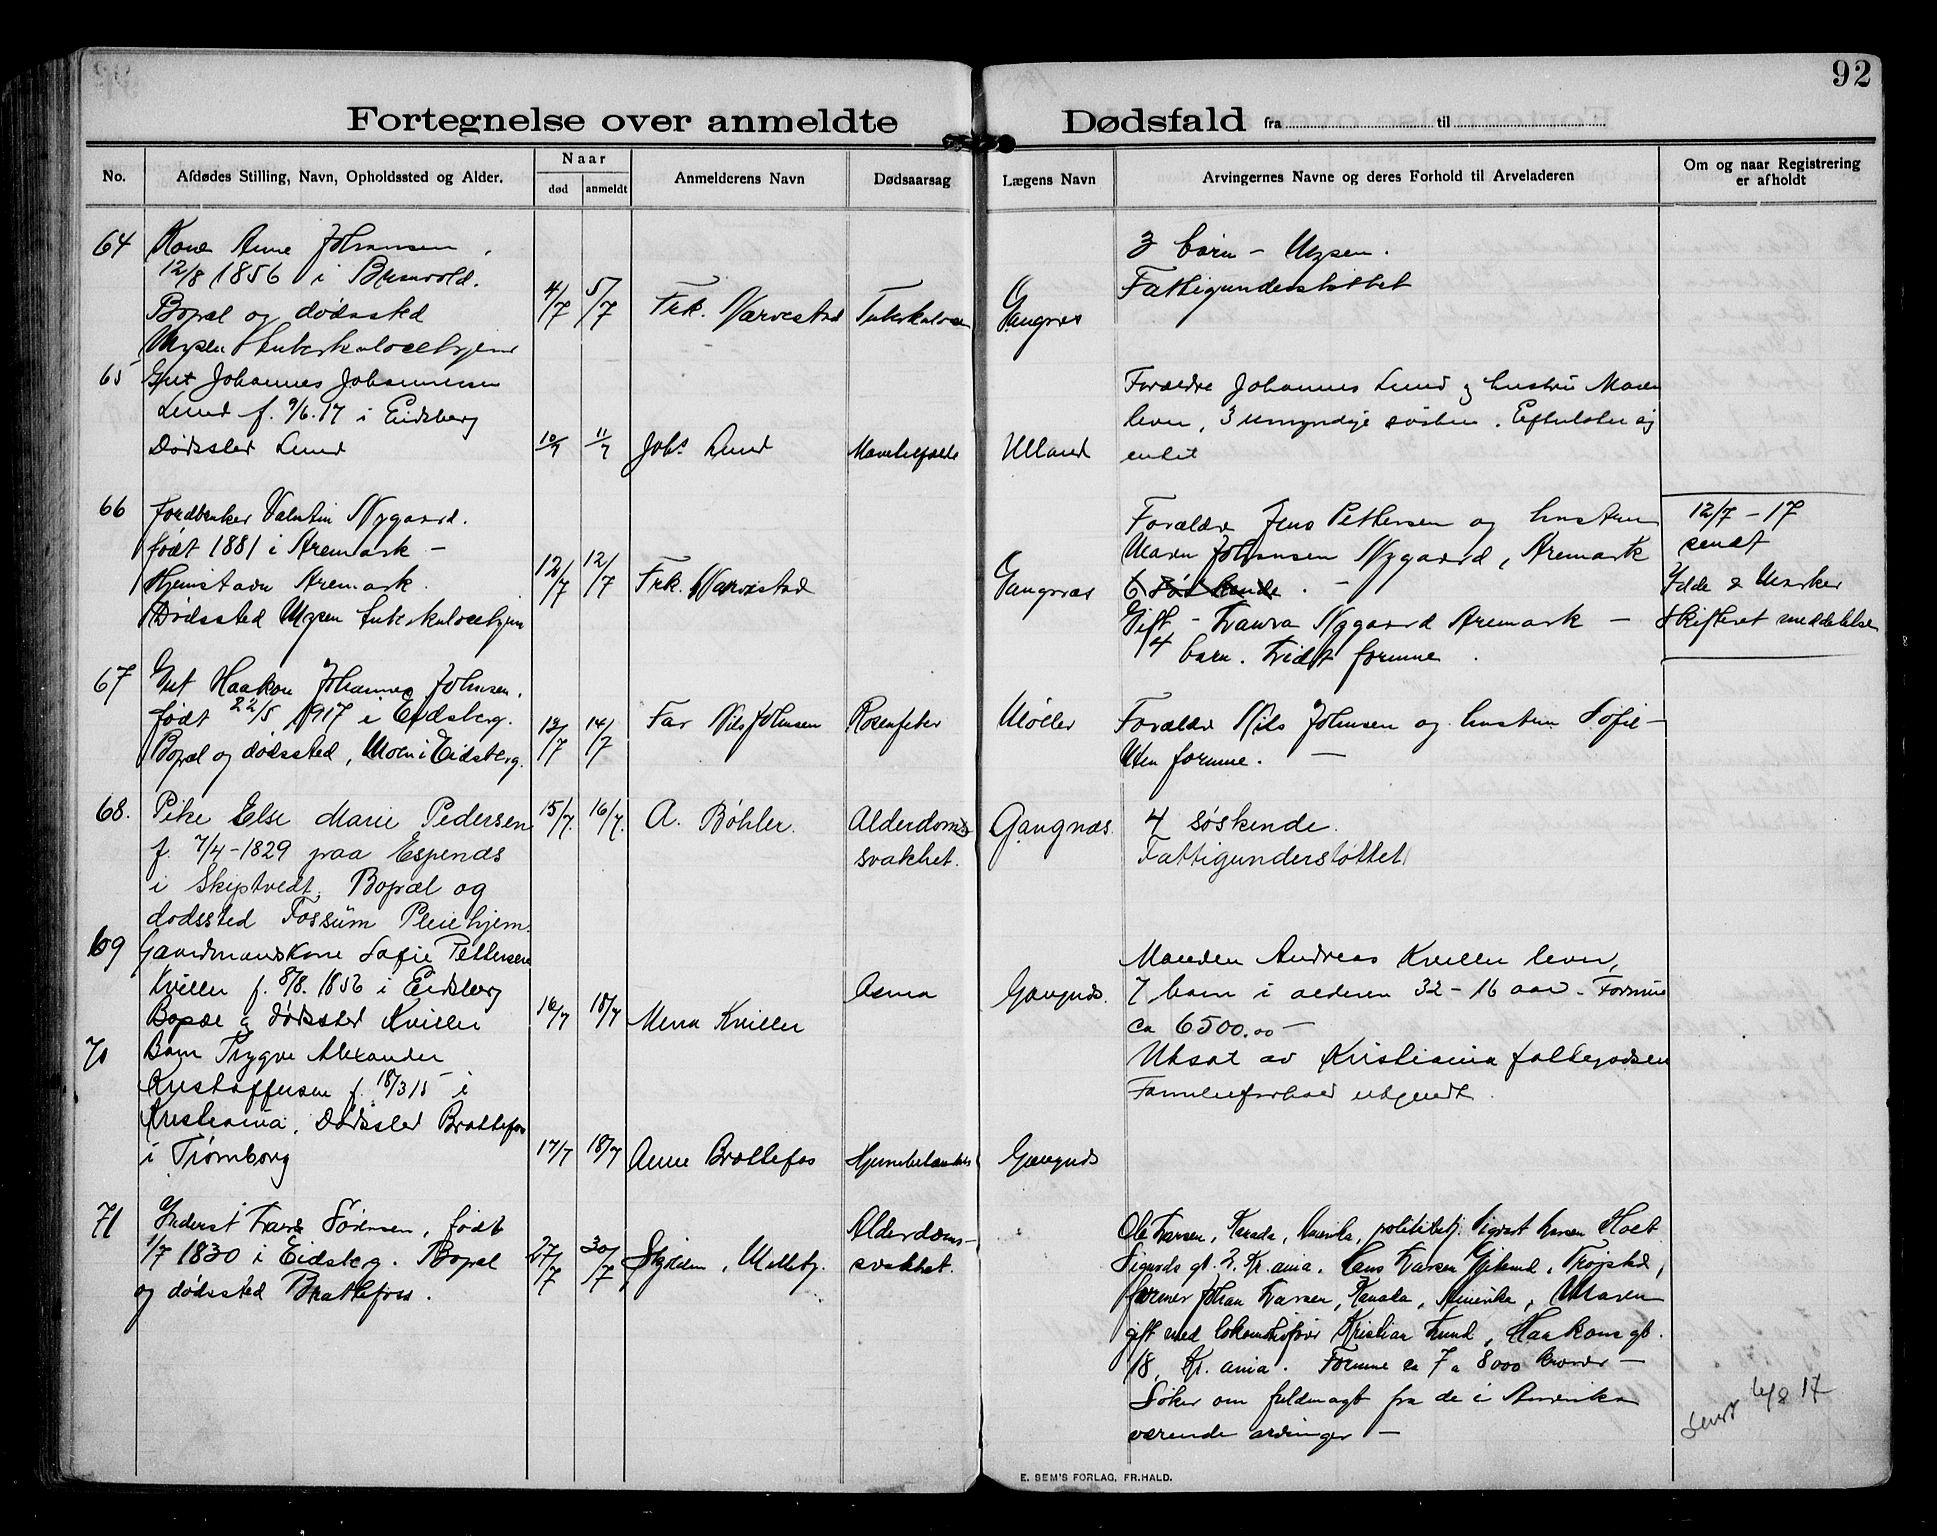 92
Fortegnelse over anmeldte Dødsfald fra til
No.
Afdødes Stilling, Navn, Opholdssted og Alder.
Naar
død
anmeldt
Anmelderens Navn
Dødsaarsag
Lægens Navn
Arvingernes Navne og deres Forhold til Arveladeren
Om og naar Registrering
er afholdt
64
Kone Anne Johansen
12/8 1856 i
Bopæl og dødssted
Mysen tuberkulosehjem
4/7
5/7
Frk. Narvestad
Tuberkulose
Gangnæs
3 børn - Mysen.
Fattigunderstøttet
65
Gut Johannes Johannesen
Lund f. 9/6.17 i Eidsberg
Dødssted Lund
10/7
11/7
Johs Lund
Ulland
Forældre Johannes Lund og hustru Maren
lever, 3 umyndige søsken. Efterlater sig
intet
66
Jordbruker Valentin Nygaard.
født 1881 i Aremark -
Hjemstavn Aremark.
Dødssted Mysen tuberkulosehjem
12/7
12/7
Frk. Narvestad
Gangnæs
Forældre Jens Pettersen og hustru
Maren Johansen Nygaard, Aremark
6 søskende. -
Gift - Laura Nygaard Aremark -
4 barn. Lidt formue.
12/7 - 17
sendt
Idde & Marker
skifteret meddelelse
67
Gut Haakon Johannes Johnsen.
født 22/5 1917 i Eidsberg.
Bopæl og dødssted, Moen i Eidsberg.
13/7
14/7
Far Nils Johnsen
Rosenfeber
Møller
Forældre Nils Johnsen og hustru Sofie -
Uten formue. -
68.
Pike Else Marie Pedersen
f. 7/4-1829 paa Espenæs
i Skiptvedt. Bopæl og
dødssted Fossum Pleiehjem.
15/7.
16/7.
A. Bøhler.
Alderdoms
svakhet.
Gangnæs.
4 søskende.
Fattigunderstøttet
69
Gaardmandskone Sofie Pettersen
Kviller f. 8/8. 1856 i Eidsberg
Bopæl og dødssted Kviller
16/7
18/7
Kviller
Asma
Gangnæs.
Manden Andreas Kviller lever,
7 barn i alderen 32-16 aar. Formue
ca 6500.00 -
70
Barn Trygve Alexander
Kristoffersen f. 18/3 15 i
Kristiania. Dødssted Brattefos
i Trømborg
17/7
18/7
Anne Brattefos
Gangnæs
Utsat av Kristiania fattigvæsen
Familieforhold ubekjendt.
71
Inderst Lars Sørensen, født
1/7 1830 i Eidsberg. Bopæl
og dødssted Brattefoss.
27/7
30/7
Alderdoms-
svakhet.
Ole Larsen, Kanada, Amerika, politibetj. Sigvart Larsen Moet
Sigurds gt. 2. Kr.ania. Hans Larsen, Trøgstad,
farmer Johan Larsen, Kanada, Amerika, Maren
gift med lokomotivfører Kristian Lund, Haakons gt.
18, Kr.ania. Formue ca 7 a 8000 kroner -
Søker om fuldmagt fra de i Amerika
værende arvinger -
sendt 4/8 17
E. SEM'S FORLAG, FR.HALD.